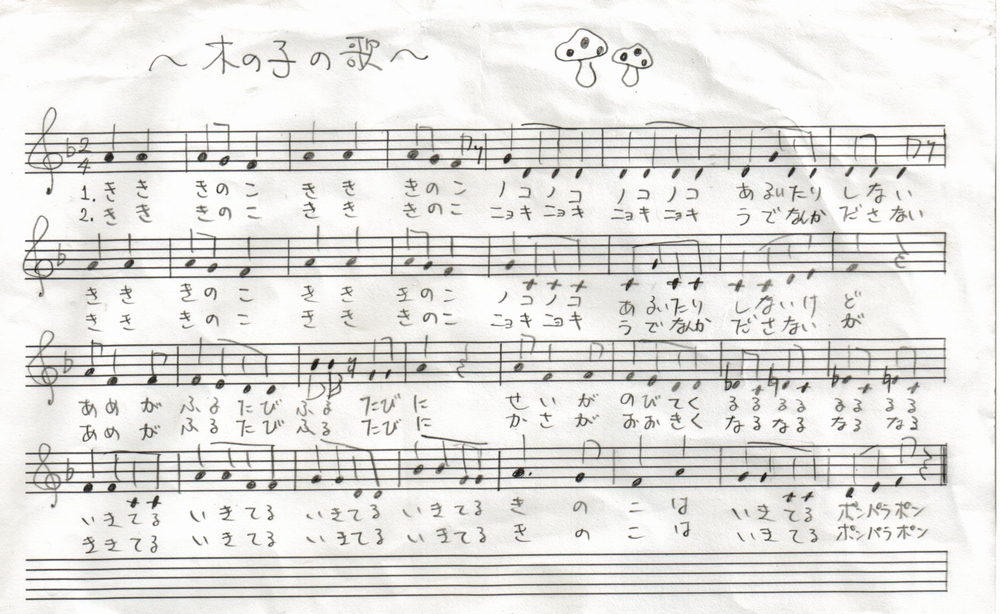 ～木の子の歌～
2
4
1. きき きのこ きき きのこ ノコノコ ノコノコ あるいたり しない
2. きき きのこ きき きのこ ニョキニョキ ニョキニョキ うでなんか ださない
きき きのこ きき きのこ ノコノコ あるいたり しないけど
きき きのこ きき きのこ ニョキニョキ うでなんか ださないが
あめが ふるたび ふるたびに せいが のびてく るるるる るるるる
あめが ふるたび ふるたびに かさが おおきく なるなる なるなる
いきてる いきてる いきてる いきてる きのこは いきてる ポンパラポン
ききてる いきてる いきてる いきてる きのこは いきてる ポンパラポン